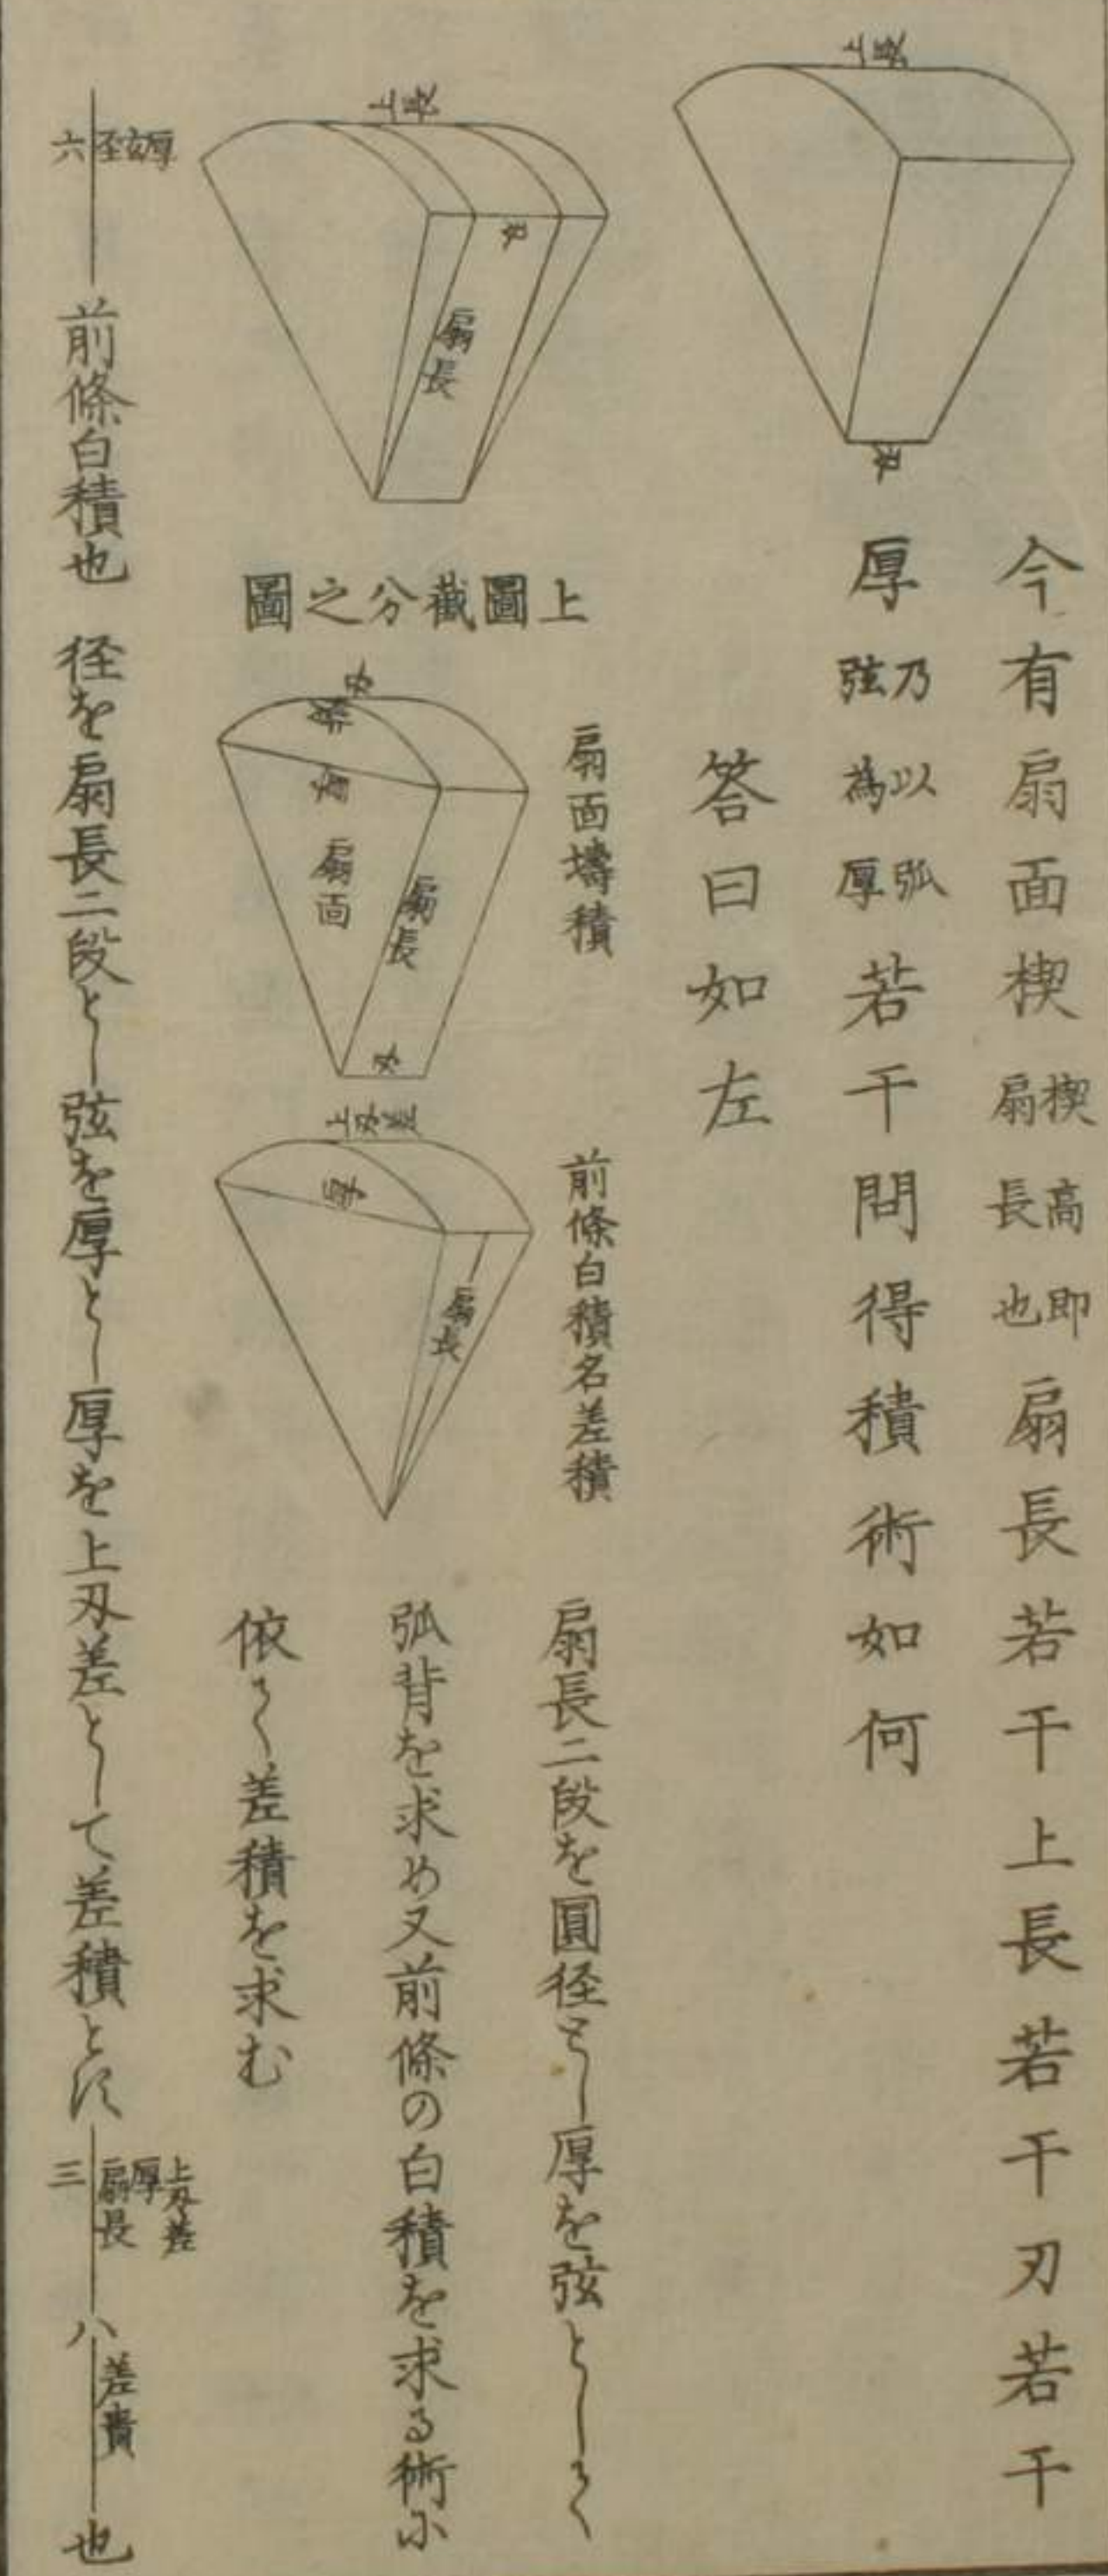 今有扇面楔楔高即扇長也扇長若干上長若干刃若干
厚乃以弧弦為厚若干問得積術如何
答曰如左
上長
刃
上長
刃
扇長
上圖截分之圖
扇面壔積
刃
背
扇面
扇長
刃
前條白積名差積
上刃差
厚
扇長
扇長二段を圓径とし厚を弦として
弧背を求め又前條の白積を求る術に
依て差積を求む
六 径玄厚 前條白積也 径を扇長二段とし弦を厚とし厚を上刃差として差積とす 三 上刃差厚扇長 八 差責 也